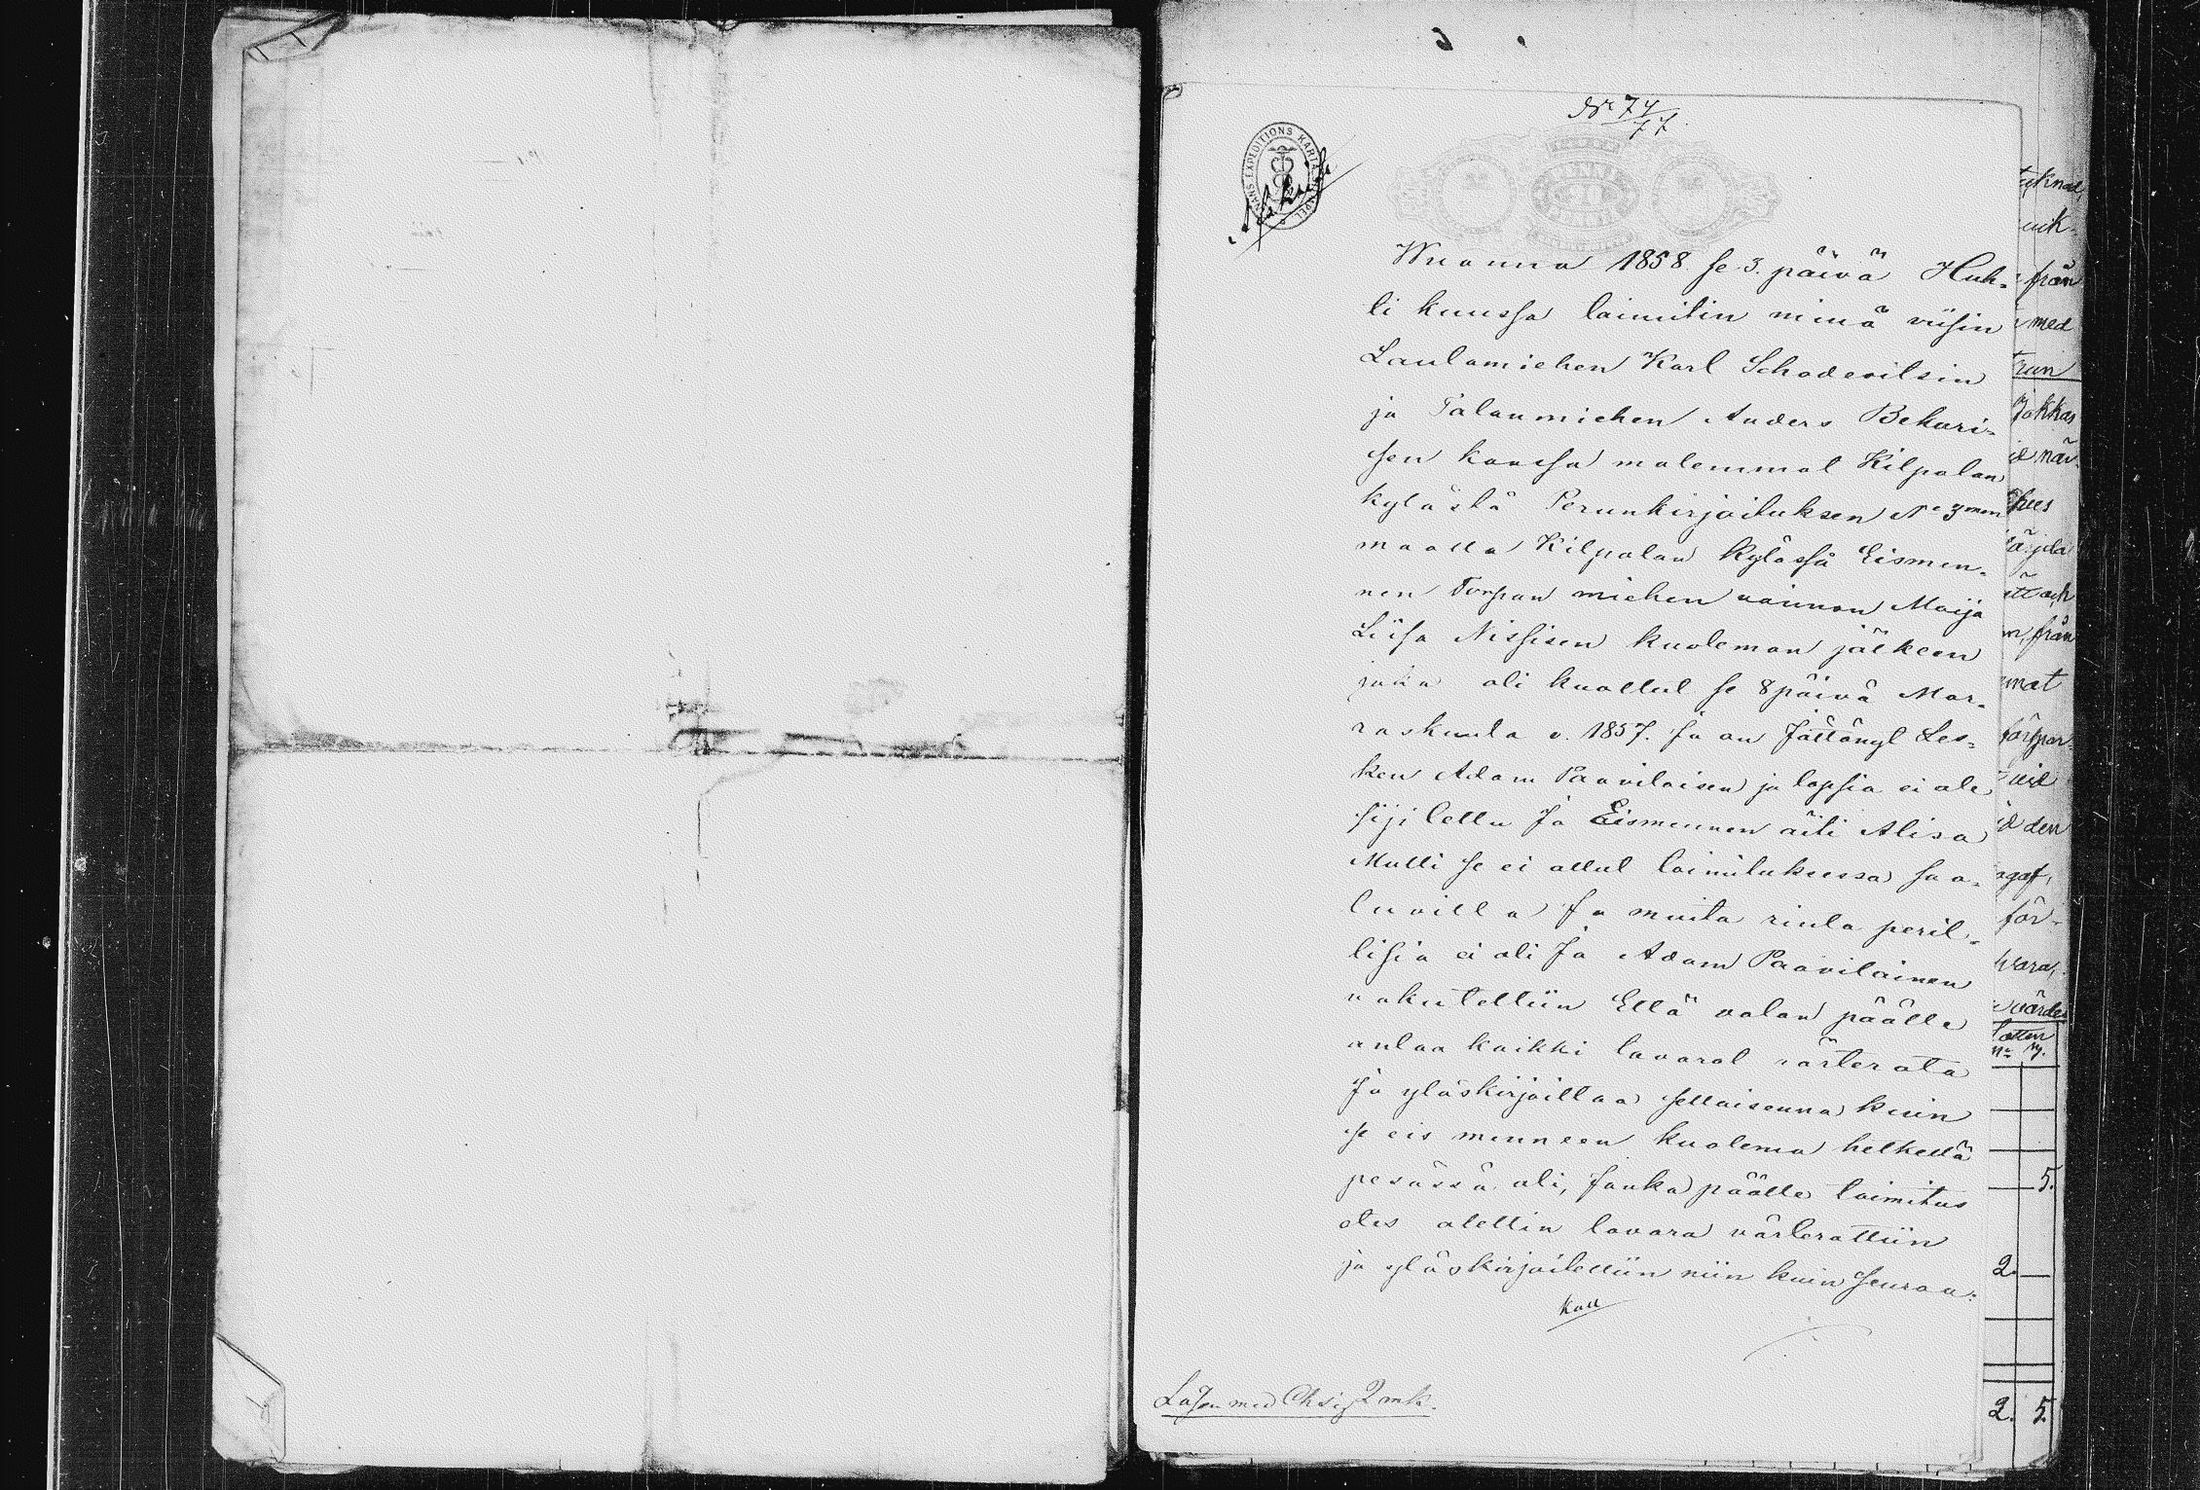 No 74/77.
Wuonna 1858 se 3. päivä Huh-
ti kuussa toimitin minä viisin
Lautamiehen Karl Schadevitsin
ja Talonmiehen Anders Behari-
sen kanssa molemmat Kilpolan
kylästä Perunkirjoituksen No 3 men
maalla Kilpolan kylässä Eismen-
nen Torpan miehen vaimon Maija
Liisa Nissisen kuoleman jälkeen
joka oli kuollut se 8 päivä Mar-
raskuuta v. 1857. ja on Jättänyt Les-
ken Adam Paavilaisen ja lapsia ei ole
sijilettu Ja Eismennen äiti Alisa
Mutti se ei ollut toimituksessa saa-
tuvilla Ja muita rinta peril-
lisia ei oli Ja Adam Paavilainen
vakutettiin Että valan päälle
antaa kaikki tavarat värterata
Ja yläskirjoittaa sellaisenna kuin
se eis menneen kuolema hetkellä
pesässä oli, Jonka päälle toimitus
otes alettin tavara värterattiin
ja yläskirjoitettiin niin kuin seuraa:
kaa
Lösen med Ch sig 2 mk.
från
med
Jokkas
från
den
för-
5.
2. —
2. 5.